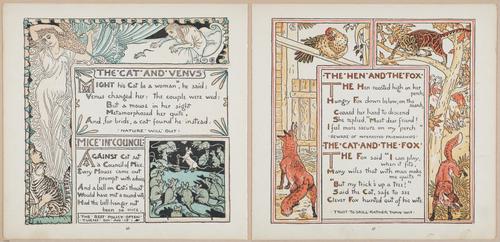 THE·CAT·AND·VENUS
MIGHT his Cat be a woman," he said:
Venus changed her: the couple were wed:
But a mouse in her sight
Metamorphosed her quite,
And, for bride, a cat found he instead.
·NATURE·WILL·OUT·
MICE·IN·COUNCIL
AGAINST Cat sat
a Council of Mice.
Every Mouse came out
prompt with advice;
And a bell on Cat's throat
Would have met a round vote,
Had the bell-hanger not
been so nice
THE·BEST·POLICY·OFTEN
TURNS·ON·AN·IF·
THE·HEN·AND·THE·FOX·
THE Hen roosted high on her
perch;
Hungry Fox down below, on the
search,
Coaxed her hard to descend
She replied, "Most dear friend!
I feel more secure on my perch."
·BEWARE·OF·INTERESTED·FRIENDSHIPS·
THE·CAT·AND·THE·FOX·
THE Fox said "I can play,
when it fits,
Many wiles that with man make
me quits"
"But my trick's up a tree!"
Said the Cat, safe to see
Clever Fox hunted out of his wits.
·TRUST·TO·SKILL·RATHER·THAN·WIT·